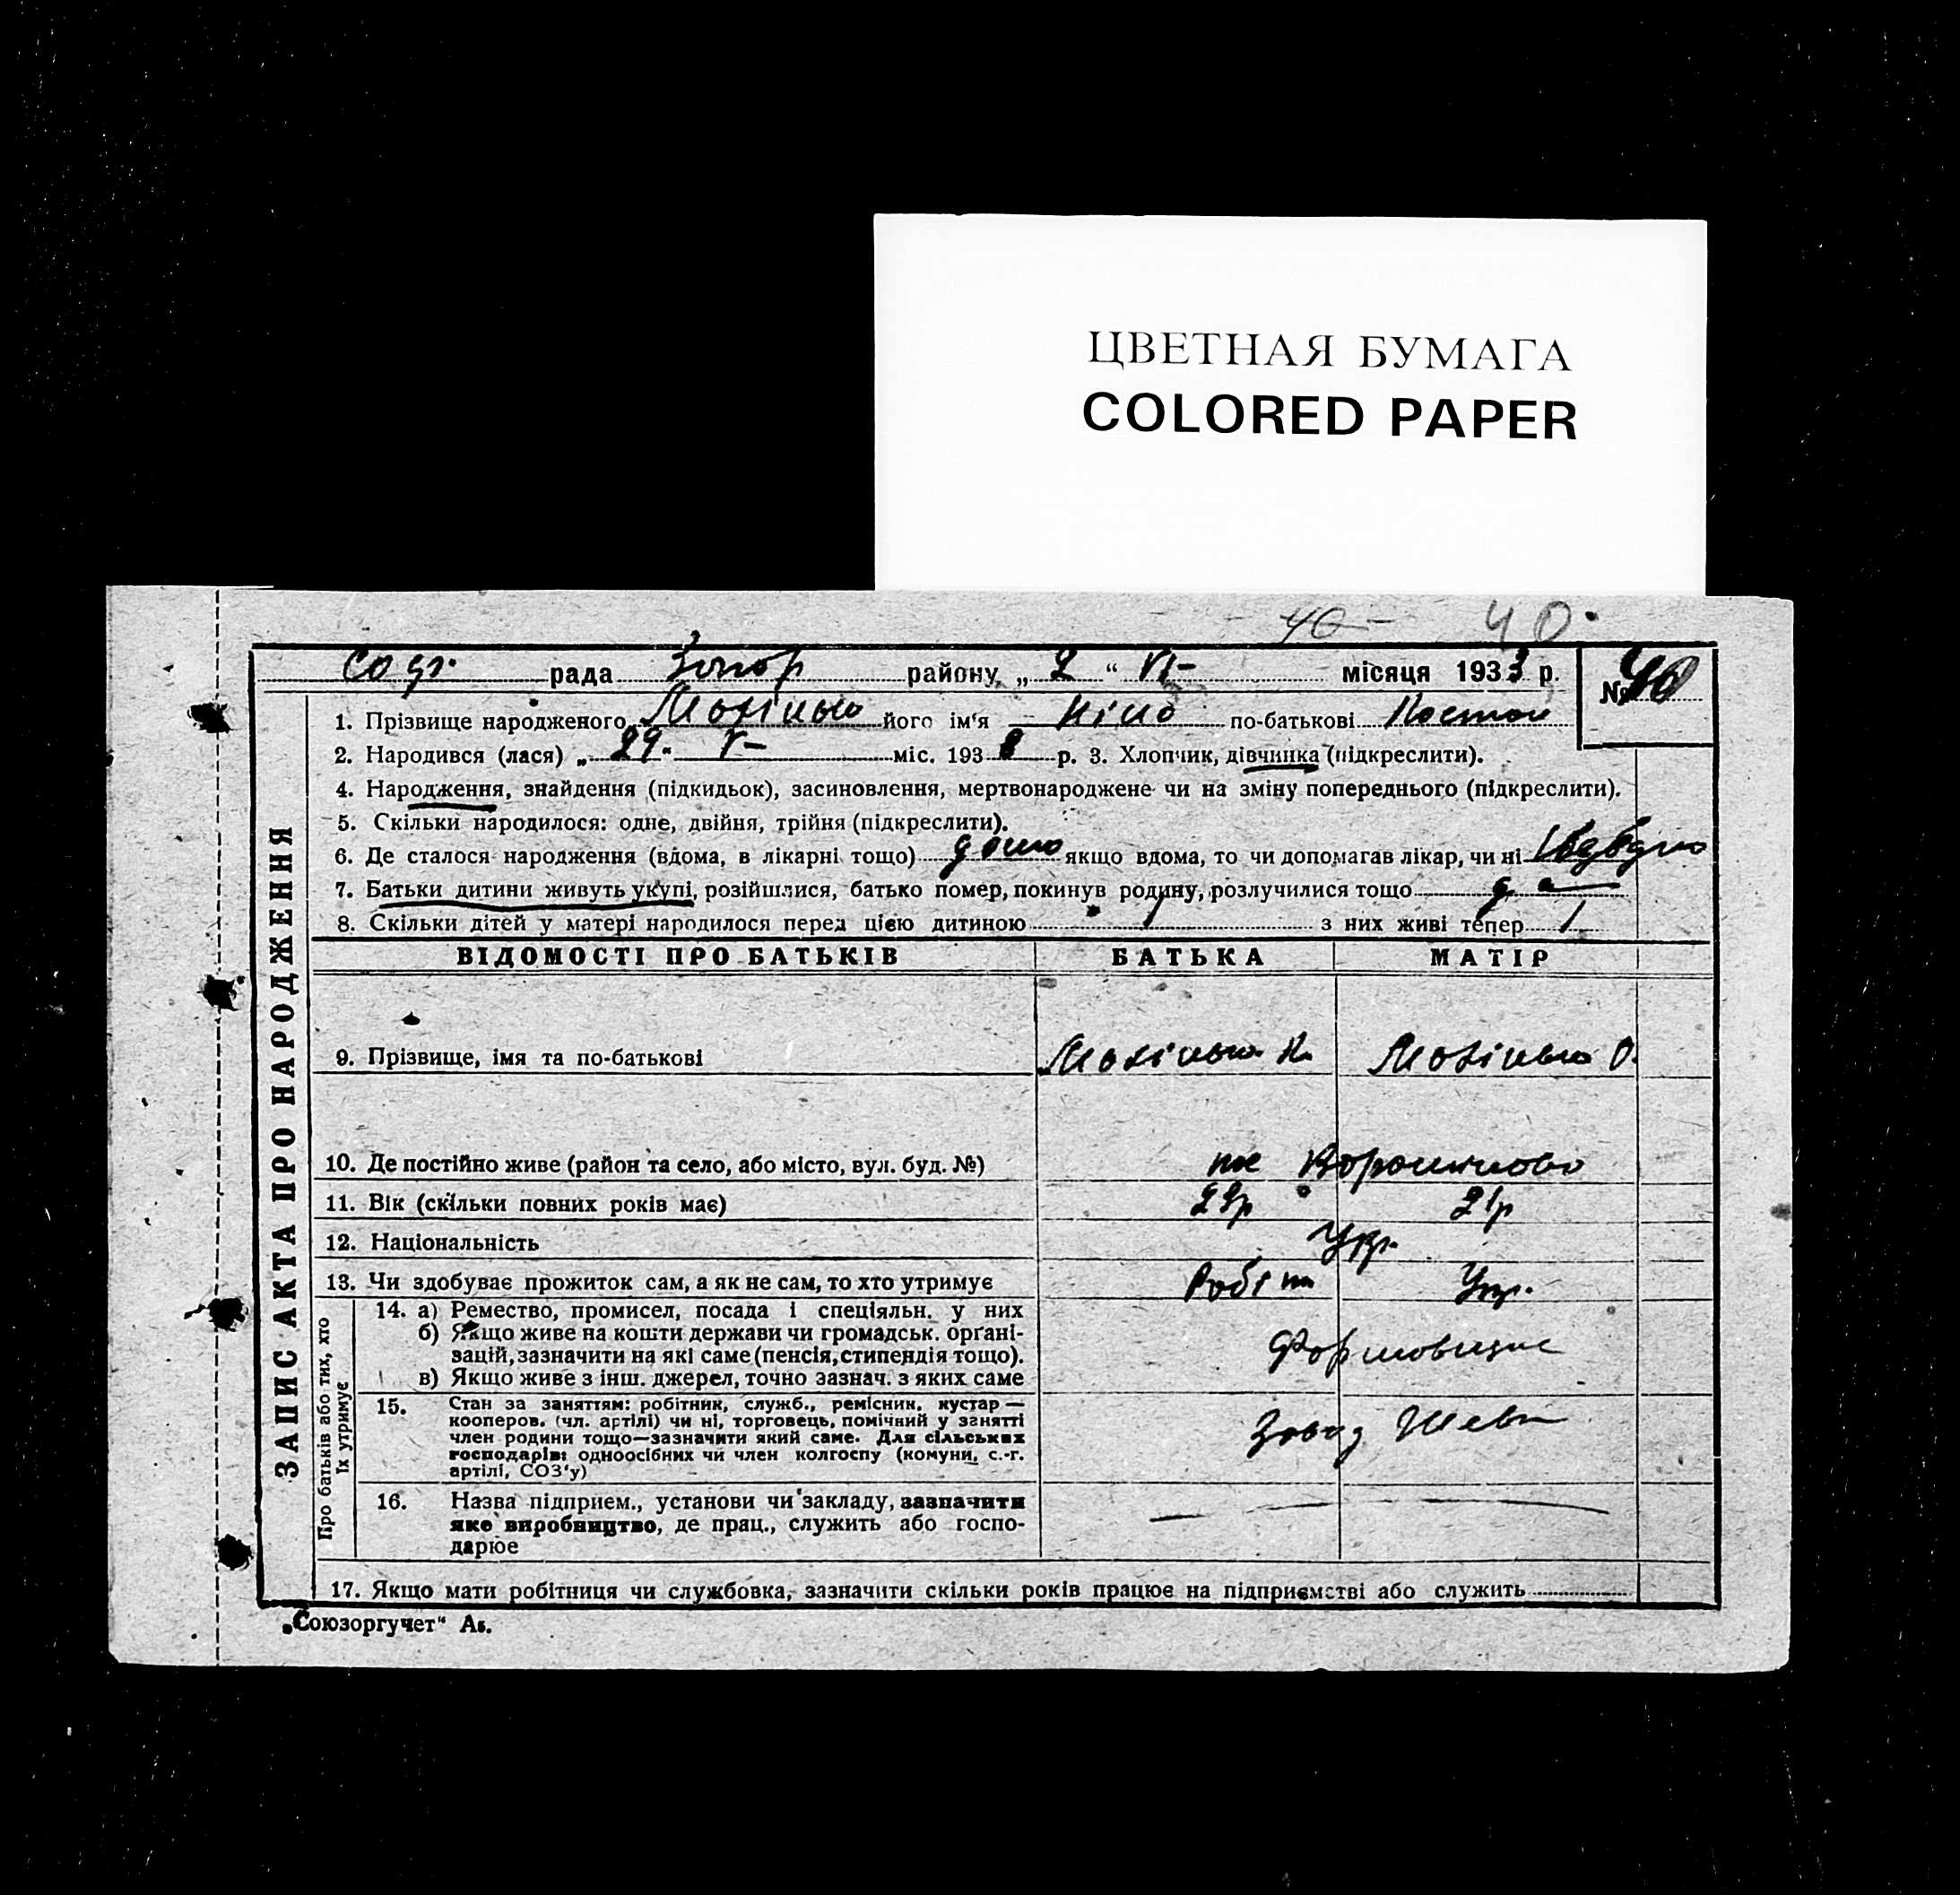 ЦВЕТНАЯ БУМАГА
COLORED PAPER
40 40.
рада району „ 2 “ VI- місяця 1933 р. № 40
1. Прізвище народженого його ім‘я Ніна по-батькові
2. Народився (лася) „ 29. V- міс. 193 р. 3. Хлопчик, дівчинка (підкреслити).
4. Народження, знайдення (підкидьок), засиновлення, мертвонароджене чи на зміну попереднього (підкреслити).
5. Скільки народилося: одне, двійня, трійня (підкреслити).
6. Де сталося народження (вдома, в лікарні тощо) дома якщо вдома, то чи допомагав лікар, чи ні
7. Батьки дитини живуть укупі, розійшлися, батько помер, покинув родину, розлучилися тощо да
8. Скільки дітей у матері народилося перед цією дитиною 1 з них живі тепер 1
ВІДОМОСТІ ПРО БАТЬКІВ БАТЬКА МАТІР
9. Прізвище, імя та по-батькові
10. Де постійно живе (район та село, або місто, вул. буд. №)
11. Вік (скільки повних років має) 21р
12. Національність Укр.
13. Чи здобуває прожиток сам, а як не сам, то хто утримує Робітн
14. а) Ремество, промисел, посада і спеціяльн. у них
б) Якщо живе на кошти держави чи громадськ. орґані-
зацій, зазначити на які саме (пенсія, стипендія тощо).
в) Якщо живе з інш. джерел, точно зазнач. з яких саме
15. Стан за заняттям: робітник, служб., ремісник, кустар—
кооперов. (чл. артілі) чи ні, торговець, помічний у занятті
член родини тощо—зазначити який саме. Для сільських
господарів: одноосібних чи член колгоспу (комуни, с.-г.
артілі, СОЗ‘у)
Завод
16. Назва підприєм., установи чи закладу, зазначити
яке виробництво, де прац., служить або госпо-
дарює
17. Якщо мати робітниця чи службовка, зазначити скільки років працює на підприємстві або служить
„Союзоргучет“ Аб.
ЗАПИС АКТА ПРО НАРОДЖЕННЯ
Про батьків або тих, хто
їх утримує